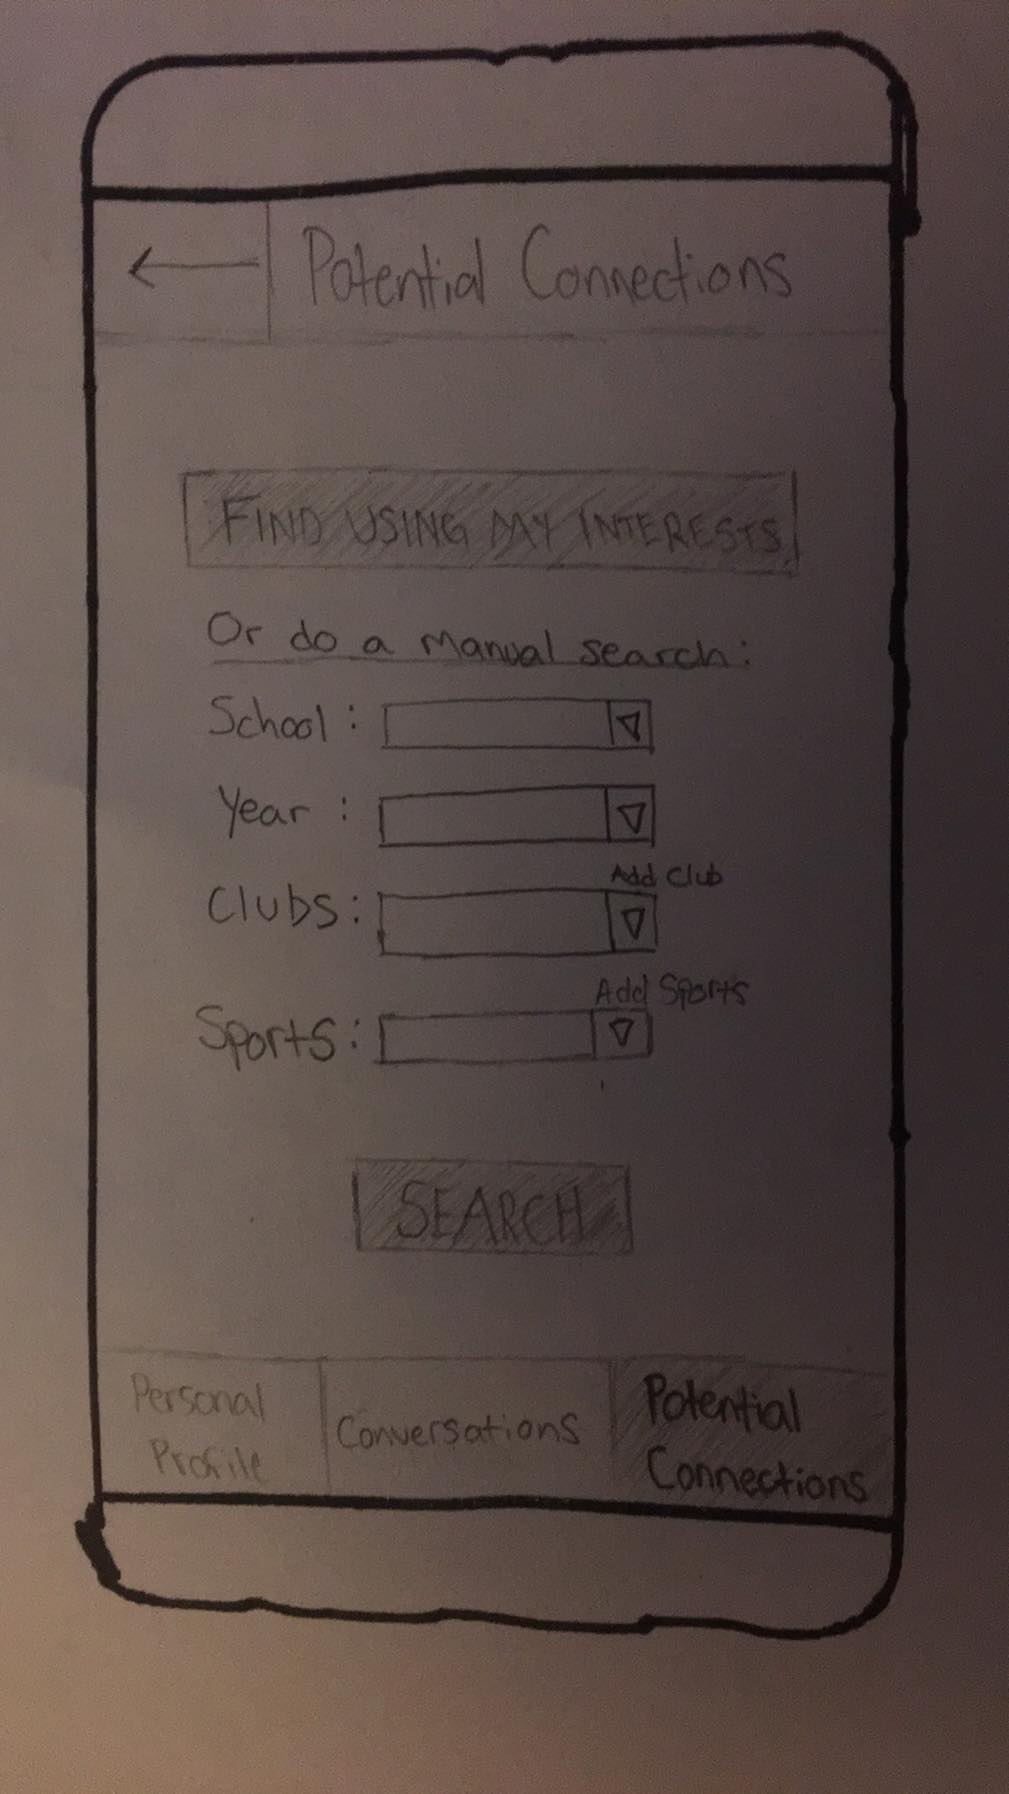 Potential Connections
FIND USING MY INTERESTS
Or do a manual search:
School :
Year :
Add Club
Clubs:
Add Sports
Sports:
SEARCH
Personal
Profile
Conversations
Potential
Connections